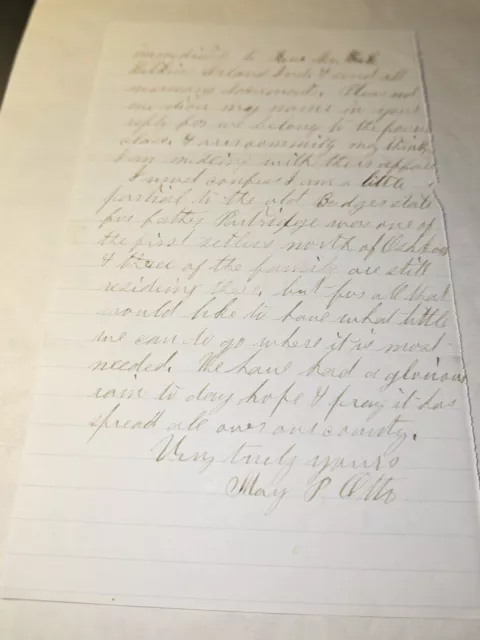 to
& send all
necessary documents. Please not
mention my name in your
reply for we belong to the poorer
class & our community may think
I am meddling with their affairs
I must confess I am a little
partial to the old Badger state
for father Partridge was one of
the first settlers north of Oshkosh
& three of the family are still
residing there, but for all that
would like to have what little
we can to go where it is most
needed. We have had a glorious
rain to day hope & pray it has
spread all over our county.
Very truly yours
May P. Otto